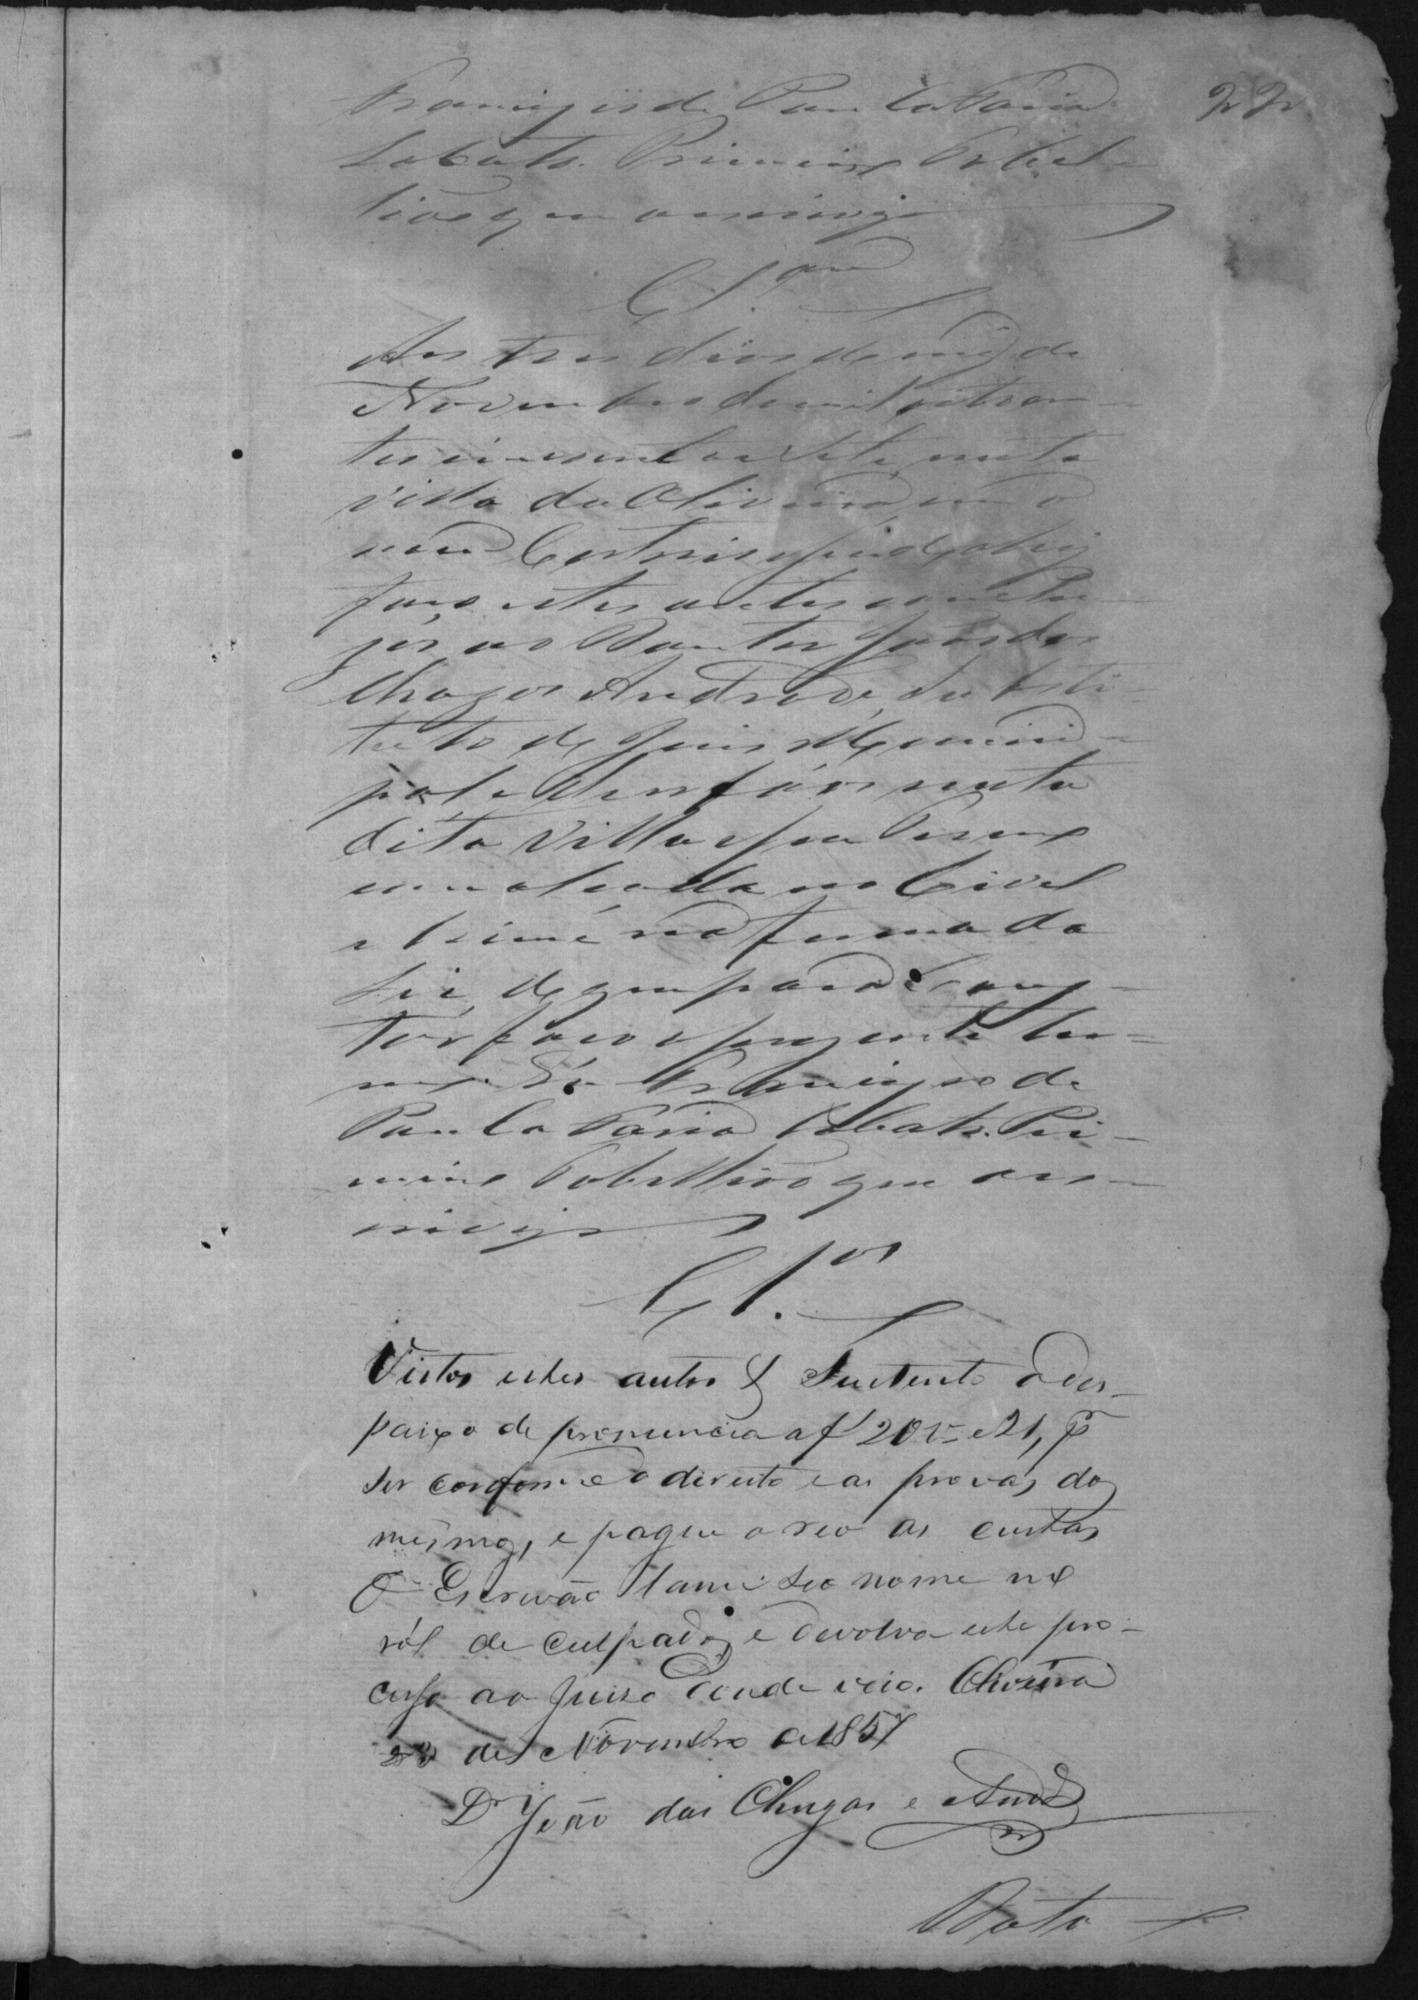 22
Francisco de Paula Faria
Lobato Primeiro Tabel-
lião que o escrevy
Cl.ᵃᵐ
Aos tres dias do mez de
Novembro de mil oitocen-
tos cincoenta e sete nesta
Villa da Oliveira, em o
meu Cartorio sendo ahy
faço estes autos conclu-
sos ao Doutor João das
Chagas Andrade, substi-
tuto de Juis Munici-
pal e Orfãos nesta
dita Villa e seu Termo
no Civel
e Crime na forma da
Lei, de que para cons-
tar faço o presente ter-
mo. Eu Francisco de
Paula Faria Lobato. Pri-
meiro Tabellião que o es-
crevy
Cl.ᵒˢ
Vistos estes autos & Sustento o des-
paixo de pronuncia a f 20 v e 21, pʳ
ser conforme o direito e as provas dos
mesmos, e pague o reo as custas
O Escrivão lance seo nome no
ról de culpados, e devolva este pro-
cesso ao Juiso donde veio. Oliveira
de Novembro de 1857
Dʳ João das Chagas e Andᵉ
Data